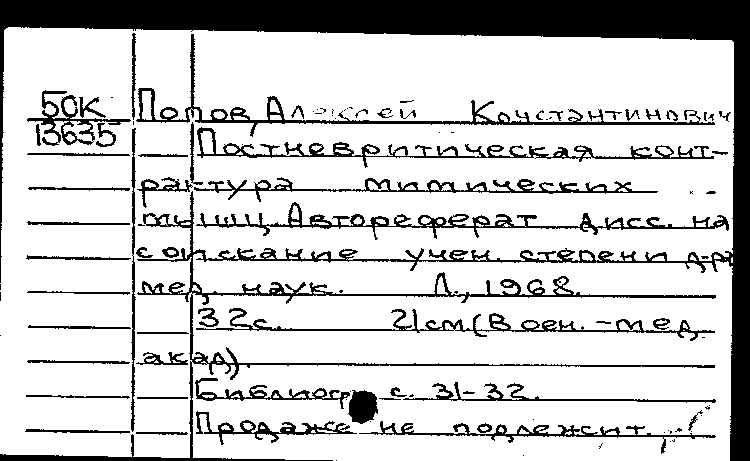 БОК Попов, Алексей Константинович
13635 Постневритическая конт-
рактура мимических
мышц. Автореферат дисс. на
соискание учен. степени д-ра
мед. наук. Л., 1968.
32с. 21см (Воен.-мед.
акад).
Библиогр. с. 31-32.
Продаже не подлежит.